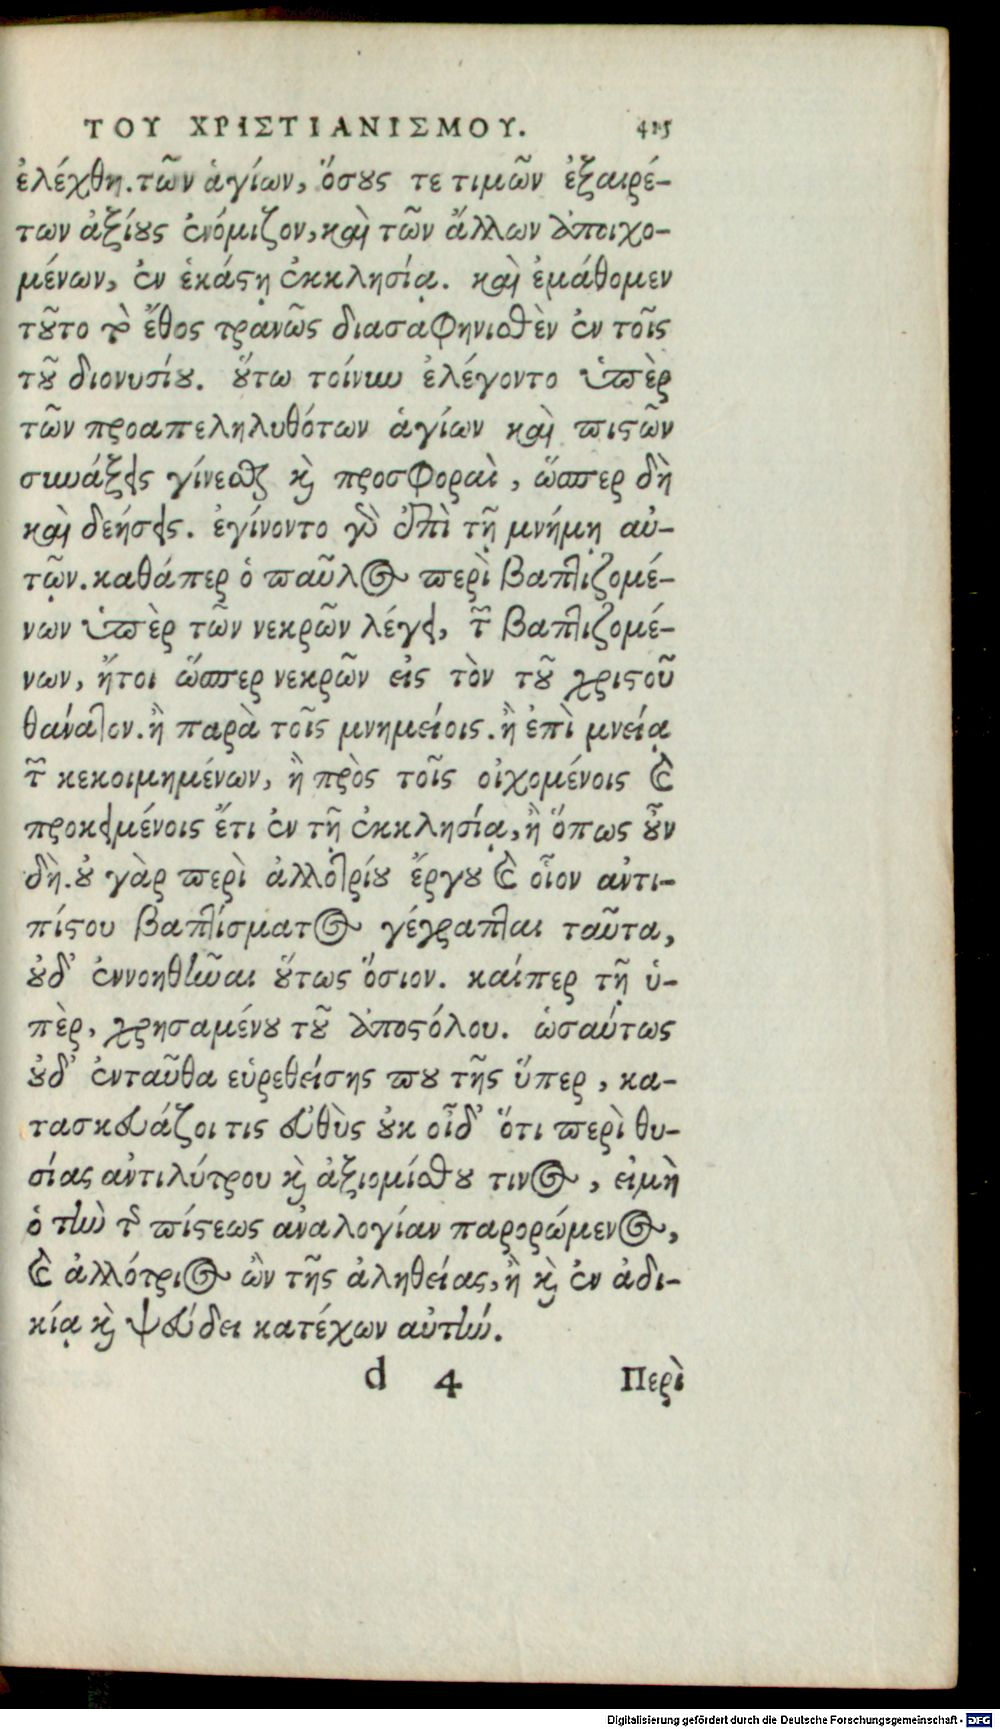 ΤΟΥ ΧΡΙΣΤΙΑΝΙΣΜΟΥ. 415
ἐλέχθη. τῶν ἁγίων, ὅσους τε τιμῶν ἐξαιρέ-
των ἀξίους ἐνόμιζον, καὶ τῶν ἄλλων ἀποιχο-
μένων, ἐν ἑκάστῃ ἐκκλησίᾳ. καὶ ἐμάθομεν
τοῦτο τὸ ἔθος τρανῶς διασαφηνισθὲν ἐν τοῖς
τοῦ διονυσίου. οὕτω τοίνυν ἐλέγοντο ὑπὲρ
τῶν προαπεληλυθότων ἁγίων καὶ πιστῶν
συνάξεις γίνεσθαι καὶ προσφοραὶ, ὥσπερ δὴ
καὶ δεήσεις. ἐγίνοντο γὰρ ἐπὶ τῇ μνήμῃ αὐ-
τῶν. καθάπερ ὁ παῦλος περὶ βαπτιζομέ-
νων ὑπὲρ τῶν νεκρῶν λέγει, τῶν βαπτιζομέ-
νων, ἤτοι ὥσπερ νεκρῶν εἰς τὸν τοῦ χριστοῦ
θάνατον. ἢ παρὰ τοῖς μνημείοις. ἢ ἐπὶ μνείᾳ
τῶν κεκοιμημένων, ἢ πρὸς τοῖς οἰχομένοις καὶ
προκειμένοις ἔτι ἐν τῇ ἐκκλησίᾳ, ἢ ὅπως οὖν
δὴ. οὐ γὰρ περὶ ἀλλοτρίου ἔργου καὶ οἷον ἀντι-
πίστου βαπτίσματος γέγραπται ταῦτα,
οὐδ' ἐννοηθῆναι οὕτως ὅσιον. καίπερ τῇ ὑ-
πὲρ, χρησαμένου τοῦ ἀποστόλου. ὡσαύτως
οὐδ' ἐνταῦθα εὑρεθείσης που τῆς ὕπερ, κα-
τασκευάζοι τις εὐθὺς οὐκ οἶδ' ὅτι περὶ θυ-
σίας ἀντιλύτρου καὶ ἀξιομίσθου τινος, εἰμὴ
ὁ τὴν τῆς πίστεως ἀναλογίαν παρορώμενος,
καὶ ἀλλότριος ὢν τῆς ἀληθείας, ἢ καὶ ἐν ἀδι-
κίᾳ καὶ ψεύδει κατέχων αὐτήν.
d 4 Περὶ
Digitalisierung gefördert durch die Deutsche Forschungsgemeinschaft - DFG